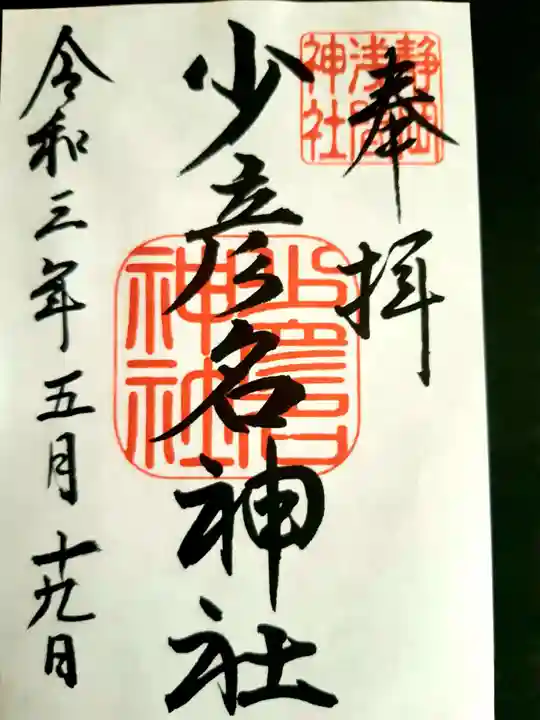 奉拝
静岡
浅間
神社
少彦名神社
少彦名
神社
令和三年五月十九日